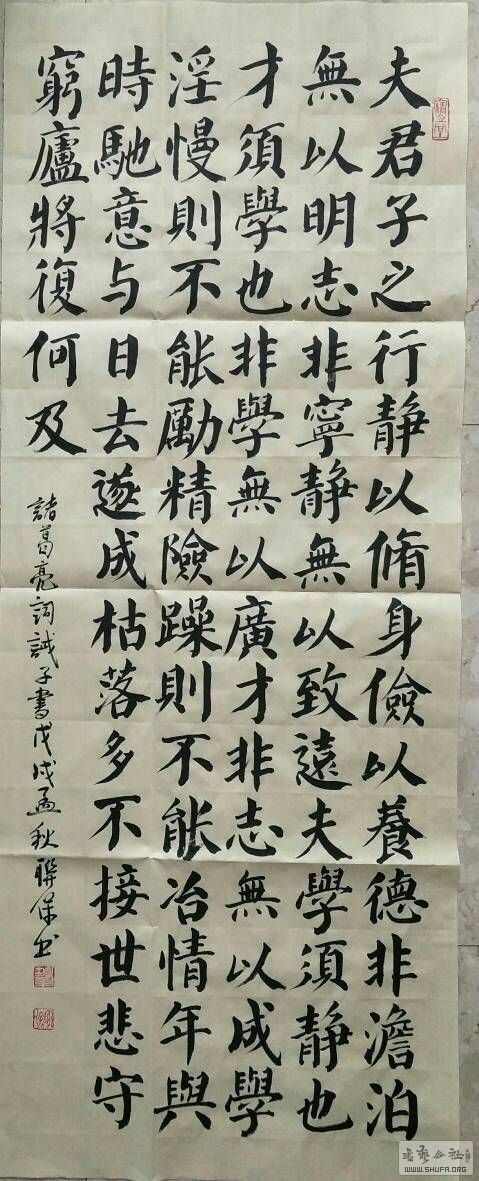 夫君子之行静以脩身儉以養德非澹泊
無以明志非寧静無以致遠夫學須静也
才須學也非學無以廣才非志無以成學
淫慢則不能勵精險躁則不能冶情年與
時馳意与日去遂成枯落多不接世悲守
窮廬將復何及
諸葛亮詞誡子書戊戌孟秋聯保书
书艺公社
WWW.SHUFA.ORG